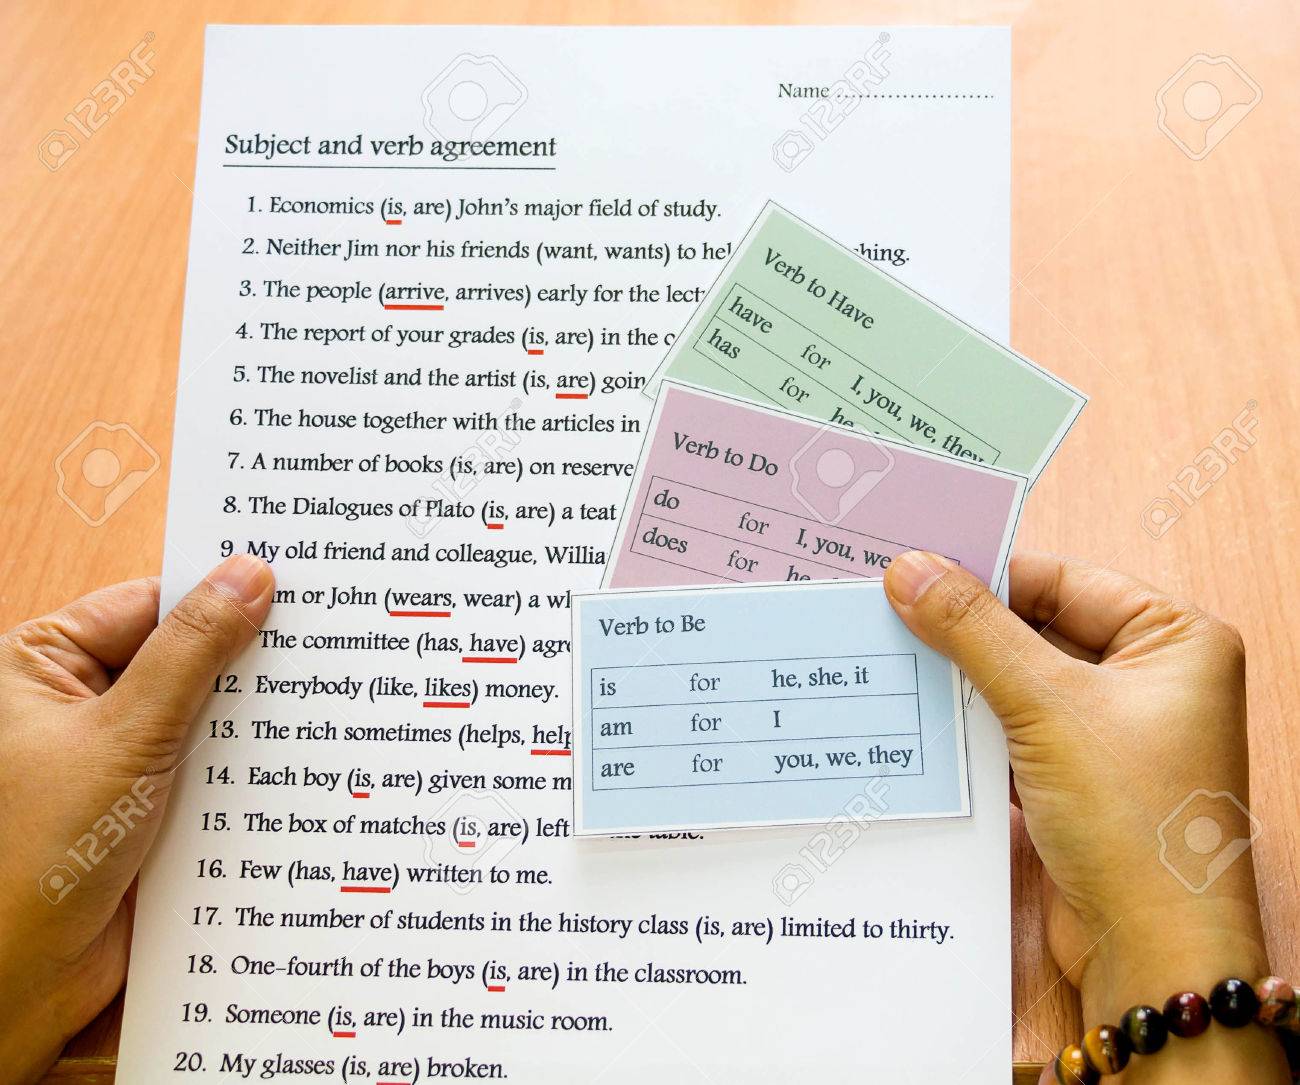 Name ......................
Subject and verb agreement
1. Economics (is, are) John's major field of study.
2. Neither Jim nor his friends (want, wants) to
3. The people (arrive, arrives) early for the
4. The report of your grades (is, are) in the
5. The novelist and the artist (is, are)
6. The house together with the articles in
7. A number of books (is, are) on reserve
8. The Dialogues of Plato (is, are) a
9. My old friend and colleague,
or John (wears, wear) a
The committee (has, have)
12. Everybody (like, likes) money.
13. The rich sometimes (helps,
14. Each boy (is, are) given some
15. The box of matches (is, are) left table.
16. Few (has, have) written to me.
17. The number of students in the history class (is, are) limited to thirty.
18. One-fourth of the boys (is, are) in the classroom.
19. Someone (is, are) in the music room.
20. My glasses (is, are) broken.
Verb to Have
have for I, you, we, they
has for he
Verb to Do
do for I, you, we
does for he
Verb to Be
is for he, she, it
am for I
are for you, we, they
123RF
123RF
123RF
123RF
123RF
123RF
123RF
123RF
123RF